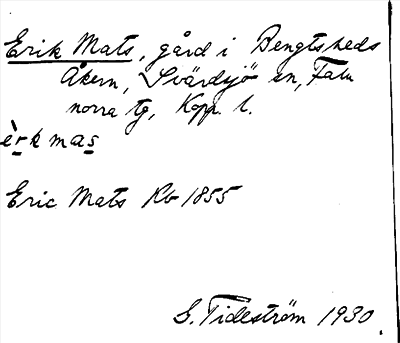 Erik Mats, gård i Bengtsheds
Åkern, Svärdsjö sn, Falu
norra tg, Kopp. l.
èrk mas
Eric Mats Rb 1855
G. Tideström 1930.